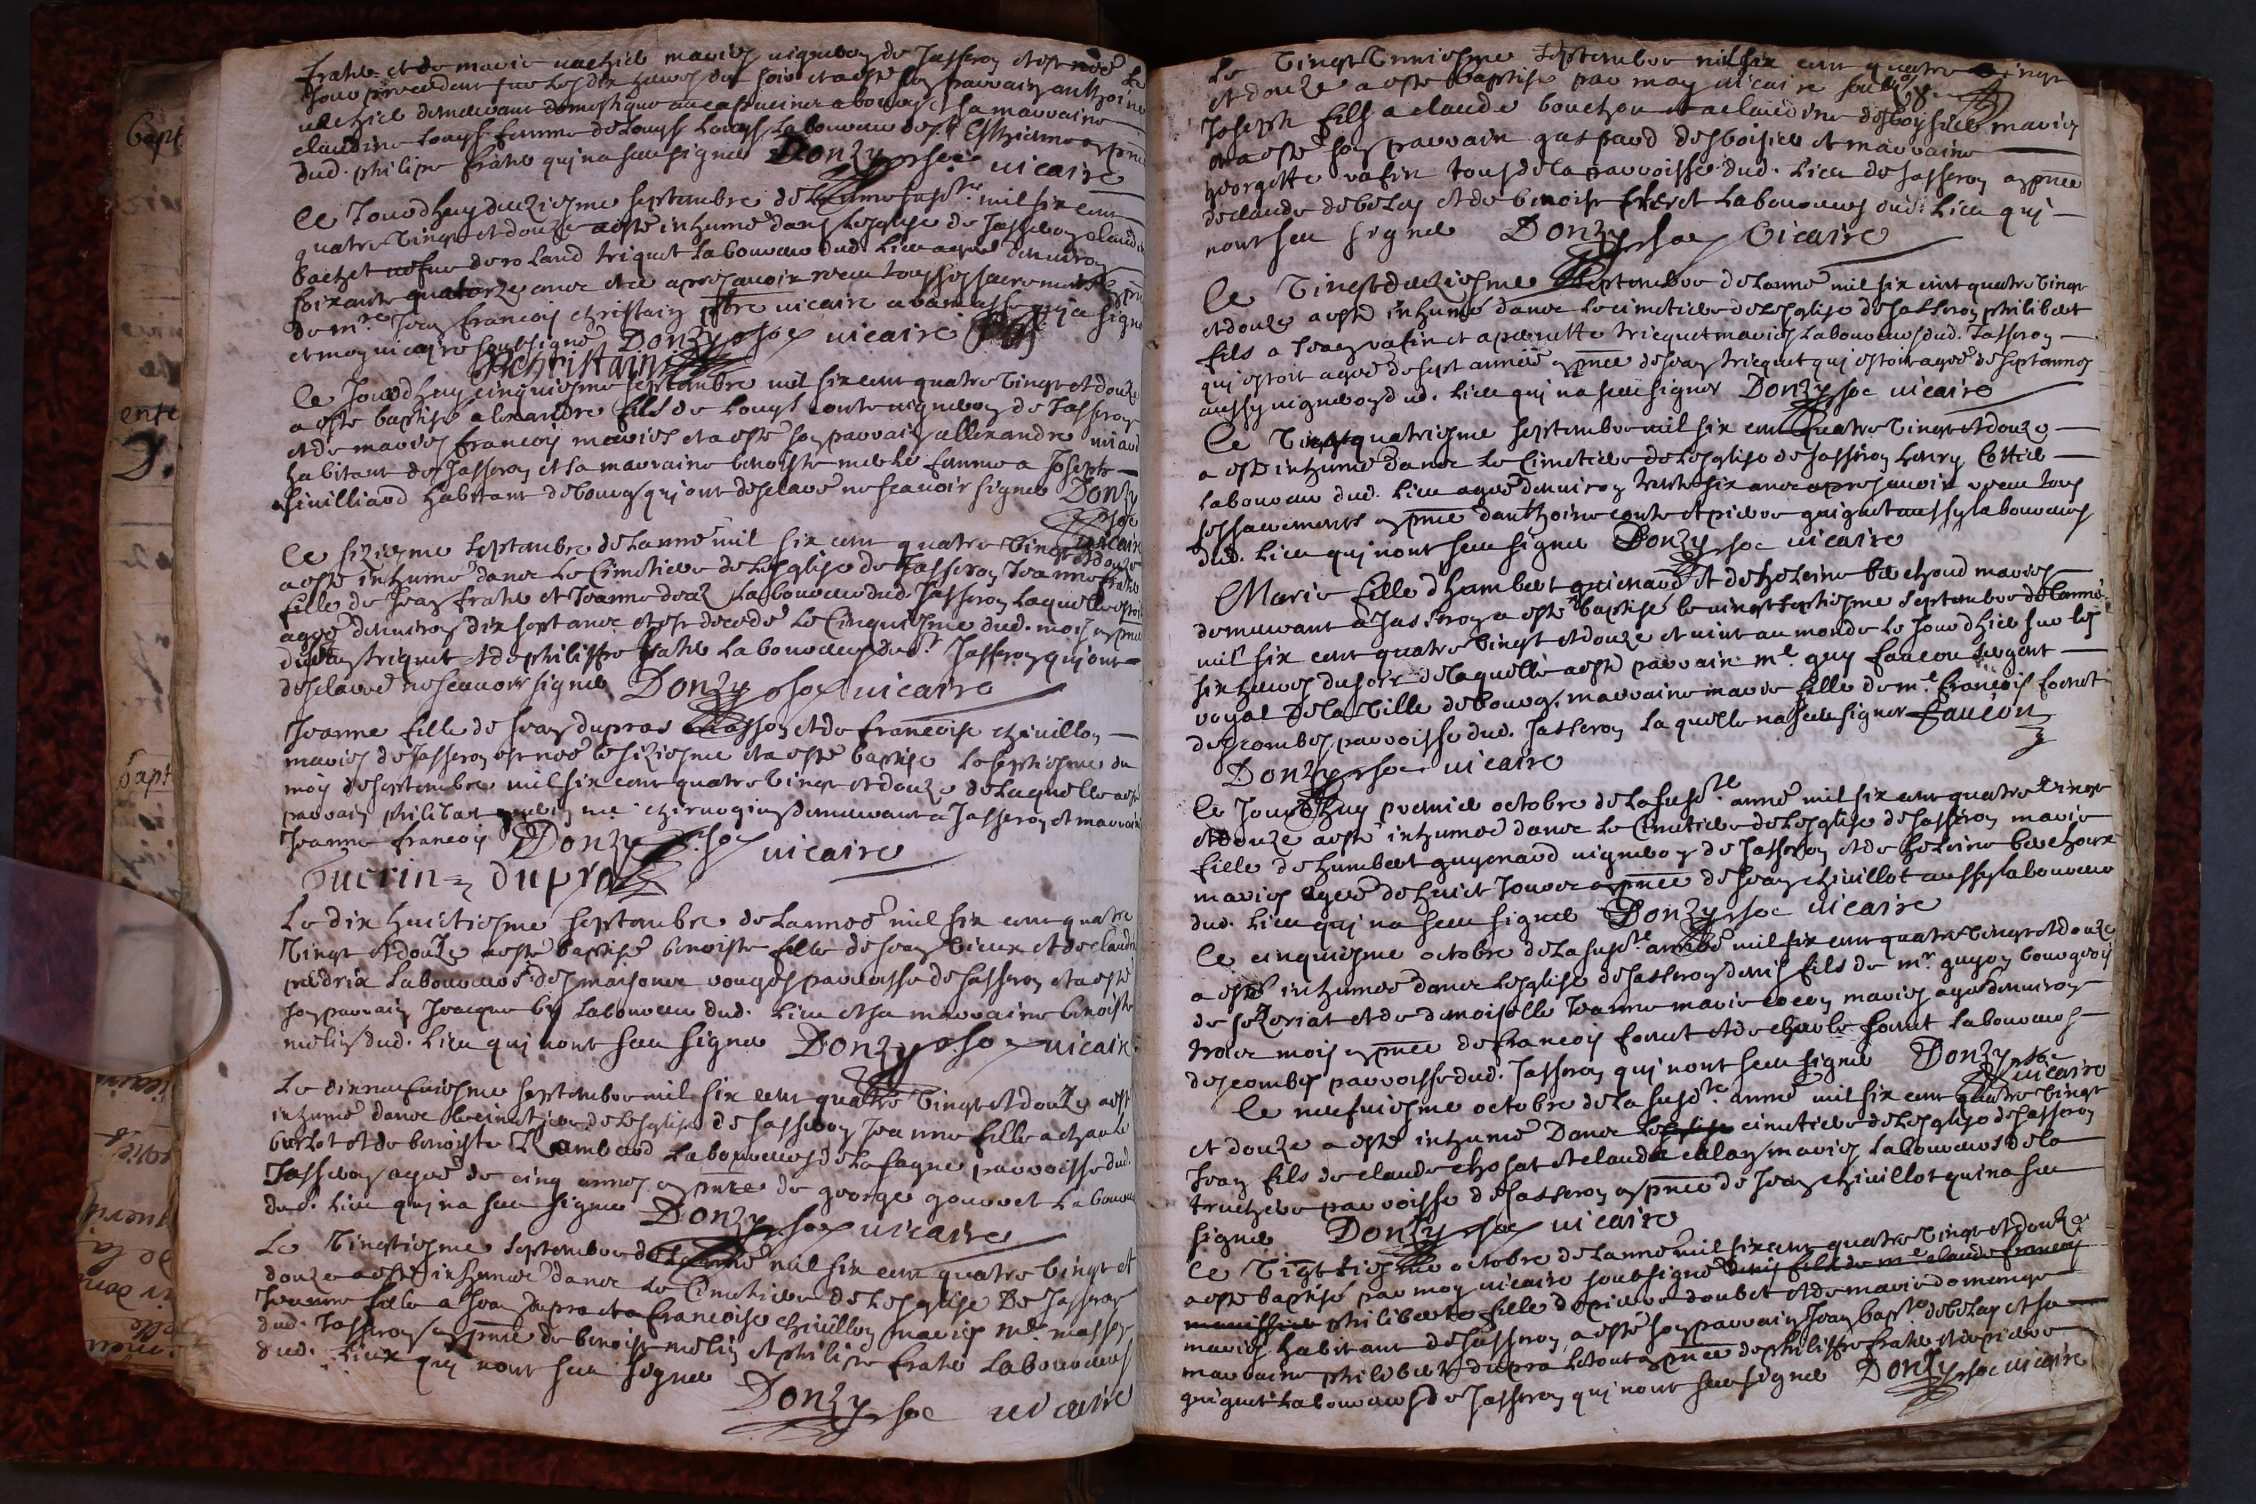 bapt
ente
bapt
frahe et de marie uachié mariés uigneron de Jasseron et est née le
Jour precedent sur les dix heures du soir et a esté son parrain anthoine
uachié demeurant domestique aux capucines a bourg et sa marraine
claudine Louys femme de Louys Louys Laboureur de st Esthienne en pnce
dud. philipe frahe qui na sceu signer Donzy soc uicaire
Ce Jourdhuy deuziesme septembre de L'anné susd.te mil six cent
quatre Vingt et douze a esté inhumé dans Leglise de Jasseron claudine
bachet uefue de roland triquet Laboureur dud. Lieu agée denuiron
soixante quatorze ance et ce apres auoir receu tous ses sacrements
de m.re Jean francois christain pbre uicaire a qui a signé
et moy uicaire soubsigné Donzy soc uicaire
christain
Ce Jourdhuy cinquiesme septembre mil six cent quatre Vingt et douze
a esté baptisé alexandre fils de Louys conte uigneron de Jasseron
et de marie francois mariés et a esté son parrain allexandre
habitant de Jasseron et La marraine benoiste femme a Joseph
habitant de bourg qui ont desclaré ne scauoir signer Donzy
soc
uicaire
Ce siziesme septembre de Lanné mil six cent quatre Vingt et douze
a esté inhumé dance Le Cimetiere de Lesglise de Jasseron Jeanne frahe
fille de Jean frahe et Jeanne Laboureur dud. Jasseron Laquelle estoit
agée denuiron dix sept ance et est decedé Le Cinquiesme dud. mois en pnce
de Jean triquet et de philippe frahe Laboureurs dud.t Jasseron qui ont
desclaré ne scauoir signer Donzy soc uicaire
Jeanne fille de Jean dupras masson et de francoise chiuillon
mariés de Jasseron est née Le siziesme et a esté baptisé Le septiesme du
mois de septembre mil six cent quatre Vingt et douze de Laquelle a esté
parrain philibert guerin me chirurgien demeurant a Jasseron et marraine
Jeanne francois Donzy soc uicaire
Guerin dupra
Le dix huictiesme septembre de Lannee mil six cent quatre
Vingt et douze a esté baptisé benoiste fille de Jean Vieux et de claudine
perdrix Laboureurs des maisons rouges parroisse de Jasseron et a esté
son parrain Jacque by Laboureur dud. Lieu et sa marraine benoiste
melin dud. Lieu qui nont sceu signer Donzy soc uicaire
Le dixneufuiesme septembre mil six cent quatre Vingt et douze a esté
inhumé dance Le cimetiere de Lesglise de Jasseron Jeanne fille a charle
burlot et de benoiste Rambaud Laboureurs de La fagne parroisse dud.
Jasseron agée de cinq annes en pnce de george gouuet Laboureur
dud. Lieu qui na sceu signer Donzy soc uicaire
Le Vingtiesme septembre de Lanné mil six cent quatre Vingt et
douze a esté inhumée dance Le Cimetiere de Lesglise De Jasseron
Jeanne fille a Jean dupra et a francoise chiuillon mariés me masson
dud. Jasseron en pnce de benoist melin et philipe frahe Laboureurs
dud. Lieux qui nont sceu signer
Donzy soc uicaire
Le Vingt Vniesme septembre mil six cent quatre Vingt
et douze a esté baptisé par moy uicaire soubsigné
Joseph fils a claude bouchou et a claudine desboissier mariés
et a esté son parrain gaspard desboissier et marraine
georgette rafin tous de la parroisse dud. Lieu de Jasseron en pnce
de claude debelay et de benoist Laboureurs dud. Lieu qui
nont sceu signer Donzy soc Vicaire
Ce Vingt deuziesme septembre de Lanné mil six cent quatre Vingt
et douze a esté inhumé dance Le cimetiere de Lesglise de Jasseron philibert
fils a Jean rafin et a pernette tricquet mariés Laboureurs dud. Jasseron
qui estoit agée de sept année en pnce de Jean tricquet qui estoit agée de sept annes
aussy uigneron dud. Lieu qui na sceu signer Donzy soc uicaire
Ce Vingt quatriesme septembre mil six cent quatre Vingt et douze
a esté inhumé dance Le Cimetiere de Lesglise de Jasseron henry Cottier
Laboureur dud. Lieu agée denuiron trente six ance apres auoir receu tous
ses sacrements en pnce danthoine conte et pierre guiguet aussy Laboureurs
dud. Lieu qui nont sceu signer Donzy soc uicaire
Marie fille dhumbert guienard et de heleine berchoud mariés
demeurant a Jasseron a esté baptisé le uingt septiesme septembre de Lanné
mil six cent quatre Vingt et douze et uint au monde Le Jour dhier sur les
six heures du soir de Laquelle a esté parrain me guy faucon sergent
royal de La Ville de bourg marraine marie fille de me francois fornet
des combes parroisse dud. Jasseron Laquelle na sceu signer faucon
Donzy soc uicaire
Ce Jourdhuy premier octobre de La susd.te anné mil six cent quatre Vingt
et douze a esté inhumée dance Le Cimetiere de Lesglise de Jasseron marie
fille de humbert guyenard uigneron de Jasseron et de heleine berchoux
mariés agée de huict Jours en pnce de Jean chiuillot aussy Laboureur
dud. Lieu qui na sceu signer Donzy soc uicaire
Ce cinquiesme octobre de La susd.te année mil six cent quatre Vingt et douze
a esté inhumée dance Lesglise de Jasseron denis fils de mr guyon bourgeois
de seZeriat et de demoiselle Jeanne marie cocon mariés agé denuiron
traize mois en pnce de francois fornet et de charle fornet Laboureurs
des combes parroisse dud. Jasseron qui nont sceu signer Donzy soc
uicaire
Ce neufuiesme octobre de La susd.te anné mil six cent quatre Vingt
et douze a esté inhumé Dance cimetiere de Lesglise de Jasseron
Jean fils de claude chosat et claudie mariés Laboureurs de La
truchere parroisse de Jasseron en pnce de Jean chiuillot qui na sceu
signer Donzy soc uicaire
Ce Vingtiesme octobre de Lanné mil six cent quatre Vingt et douze
a esté baptisé par moy uicaire soubsigné denis fils de me claude francois
philiberte fille de pierre doubet et de marie domange
mariés habitant de Jasseron a esté son parrain Jean bapt.e debelay et sa
marraine philiberte dupra Le tout en pnce de philippe frahe et de pierre
guiguet Laboureurs de Jasseron qui nont sceu signer Donzy soc uicaire